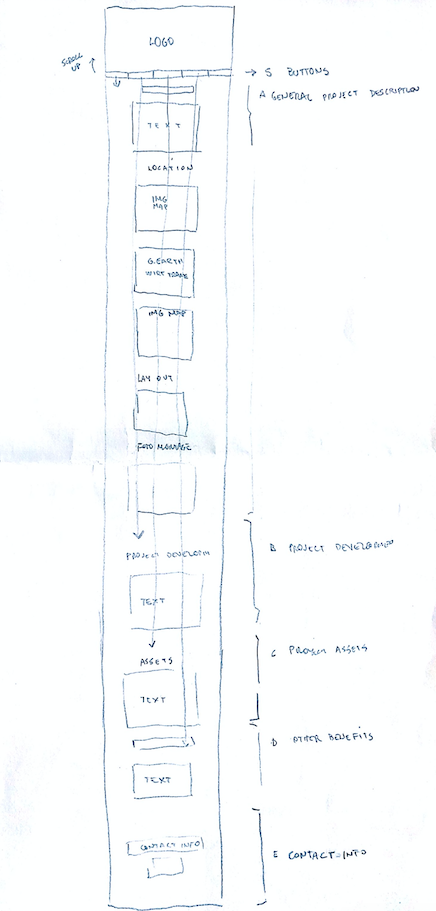 LOGO
SCROLL
UP
5 BUTTONS
A GENERAL PROJECT DESCRIPTION
TEXT
LOCATION
IMG
MAP
G.EARTH
WIRE FRAME
IMG MAP
LAY OUT
FOTO MONTAGE
PROJECT DEVELOPM
B PROJECT DEVELOPMEN
TEXT
C PROJECT ASSETS
ASSETS
TEXT
D OTHER BENEFITS
TEXT
CONTACT INFO
E CONTACT-INFO